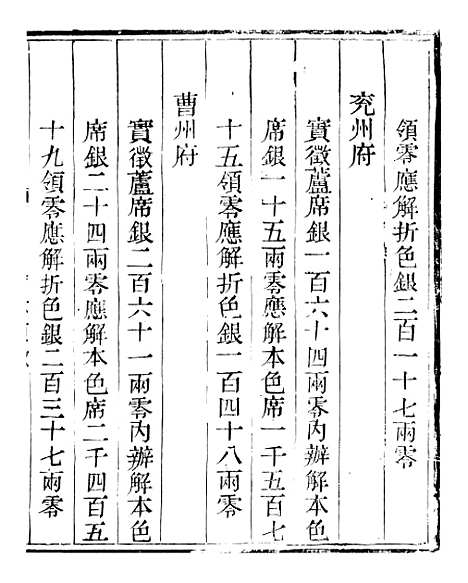 領零應解折色銀二百一十七兩零
兖州府
實徵蘆席銀一百六十四兩零內辦解本色
席銀一十五兩零應解本色席一千五百七
十五領零應解折色銀一百四十八兩零
曹州府
實徵蘆席銀二百六十一兩零內辦解本色
席銀二十四兩零應解本色席二千四百五
十九領零應解折色銀二百三十七兩零